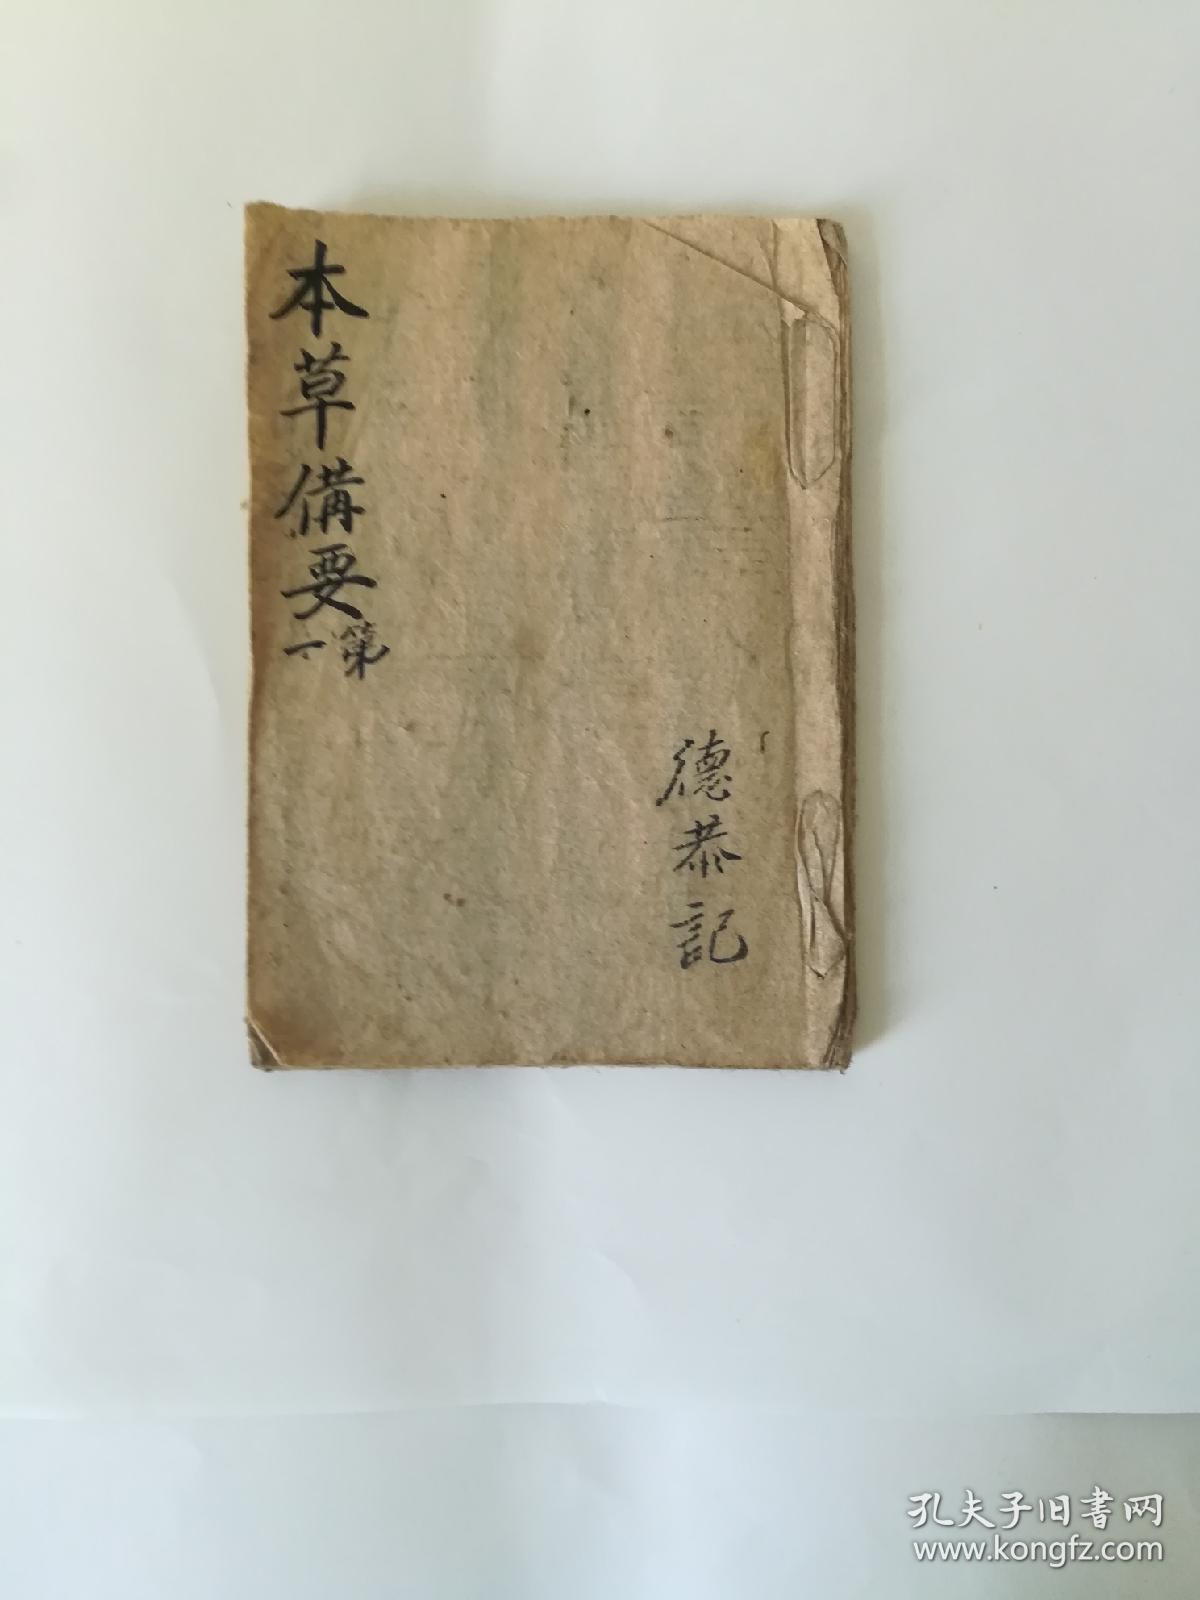 本草備要
第一
德恭記
孔夫子旧书网
www.kongfz.com